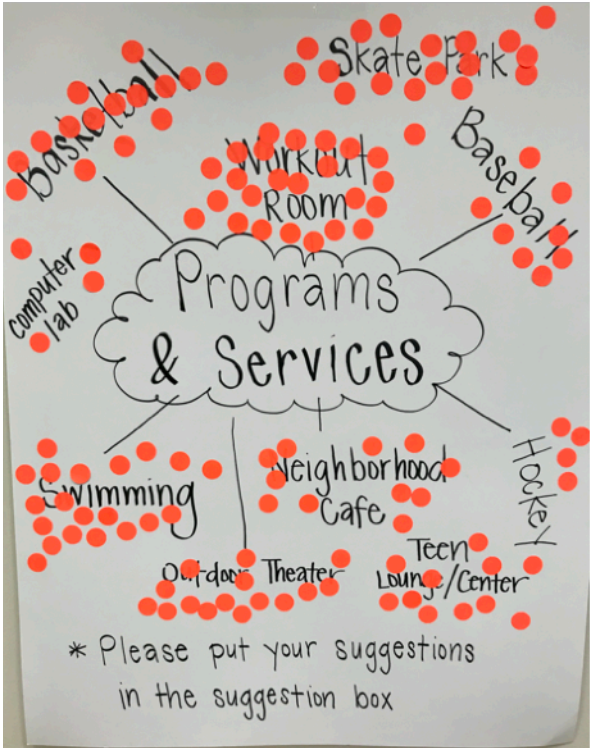 Skate Park
Basketball
Workout
Room
Baseball
computer
lab
Programs
& Services
Hockey
Swimming
Neighborhood
Cafe
Outdoor Theater
Teen
Lounge/Center
* Please put your suggestions
in the suggestion box